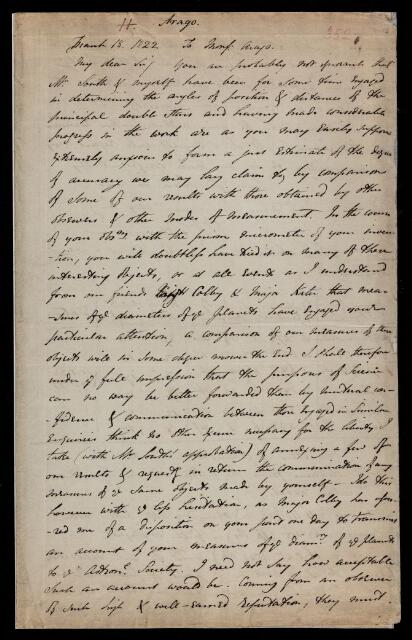 H. Arago.
March 13. 1822. To Monsr. Arago.
My dear Sir, You are probably not ignorant that
Mr. South & myself have been for some time engaged
in determining the angles of position & distances of the
principal double stars and having made considerable
progress in the work are as you may easily suppose
extremely anxious to form a just estimate of the degree
of accuracy we may lay claim to, by comparison
of some of our results with those obtained by other
observers & other modes of measurement. In the course
of your obsns. with the prism micrometer of your inven
-tion, you will doubtless have tried it on many of these
interesting objects, or at all events as I understand
from our friends Colby & Major Kater that mea-
-sures of ye diameters of ye planets have engaged your
particular attention, a comparison of our measures of these
objects will in some degree answer the end. I shall therefore
under ye full impression that the purposes of Science
can no way be better forwarded than by mutual con-
fidence & communication between those engaged in similar
enquiries think no other excuse necessary for the liberty I
take (with Mr South's approbation) of annexing a few of
our results & request in return the communication of any
measures of ye same objects made by yourself - I do this
however with ye less hesitation, as Major Colby has assu-
-red me of a disposition on your part one day to transmit
an account of your measures of ye diamrs. of ye planets
to ye Astronl. Society. I need not say how acceptable
such an account would be. Coming from an observer
of such high & well-earned reputation, they must